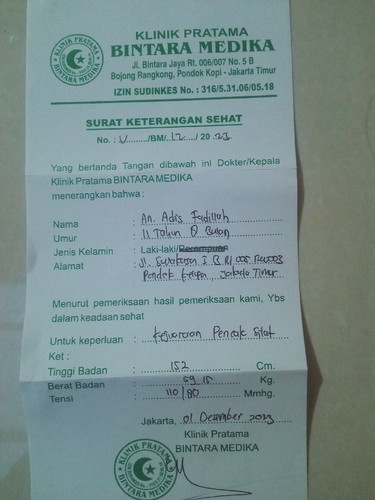 KLINIK PRATAMA
BINTARA MEDIKA
Jl. Bintara Jaya Rt. 006/007 No. 5 B
Bojong Rangkong, Pondok Kopi - Jakarta Timur
IZIN SUDINKES No. : 316/5.31.06/05.18
KLINIK PRATAMA
BINTARA MEDIKA
SURAT KETERANGAN SEHAT
No. : V /BM/ 12 / 20 23
Yang bertanda Tangan dibawah ini Dokter/Kepala
Klinik Pratama BINTARA MEDIKA
menerangkan bahwa :
Nama : An. Adis Fadillah
Umur : 11 Tahun 8 Bulan
Jenis Kelamin : Laki-laki/Perempuan
Alamat : Jl. I B Rt 005
Pondok Kelapa, Jakarta Timur
Menurut pemeriksaan hasil pemeriksaan kami, Ybs
dalam keadaan sehat
Untuk keperluan : Kejuaraan Pencak Silat
Ket :
Tinggi Badan : 152 Cm.
Berat Badan : Kg.
Tensi : 110/80 Mmhg.
Jakarta, 01 Desember 2023
Klinik Pratama
BINTARA MEDIKA
KLINIK PRATAMA
BINTARA MEDIKA